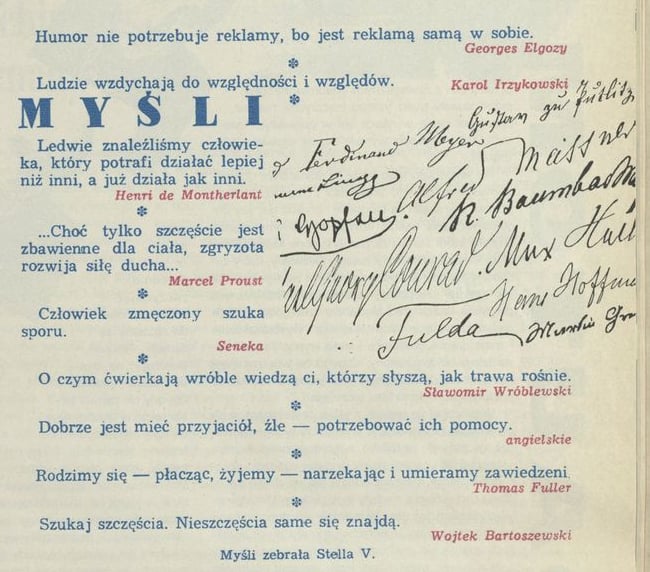 Humor nie potrzebuje reklamy, bo jest reklamą samą w sobie.
Georges Elgozy
*
Ludzie wzdychają do względności i względów.
Karol Irzykowski
*
MYŚLI
Ledwie znaleźliśmy człowie-
ka, który potrafi działać lepiej
niż inni, a już działa jak inni.
Henri de Montherlant
*
...Choć tylko szczęście jest
zbawienne dla ciała, zgryzota
rozwija siłę ducha...
Marcel Proust
*
Człowiek zmęczony szuka
sporu.
Seneka
*
Gustav zu Putlitz
Ferdinand Meyer
Alfred Meissner
R. Baumbach
Georg Conrad. Max
Hans Hoffm
Fulda
Martin Gr
O czym ćwierkają wróble wiedzą ci, którzy słyszą, jak trawa rośnie.
Sławomir Wróblewski
*
Dobrze jest mieć przyjaciół, źle — potrzebować ich pomocy.
angielskie
*
Rodzimy się — płacząc, żyjemy — narzekając i umieramy zawiedzeni.
Thomas Fuller
*
Szukaj szczęścia. Nieszczęścia same się znajdą.
Wojtek Bartoszewski
Myśli zebrała Stella V.